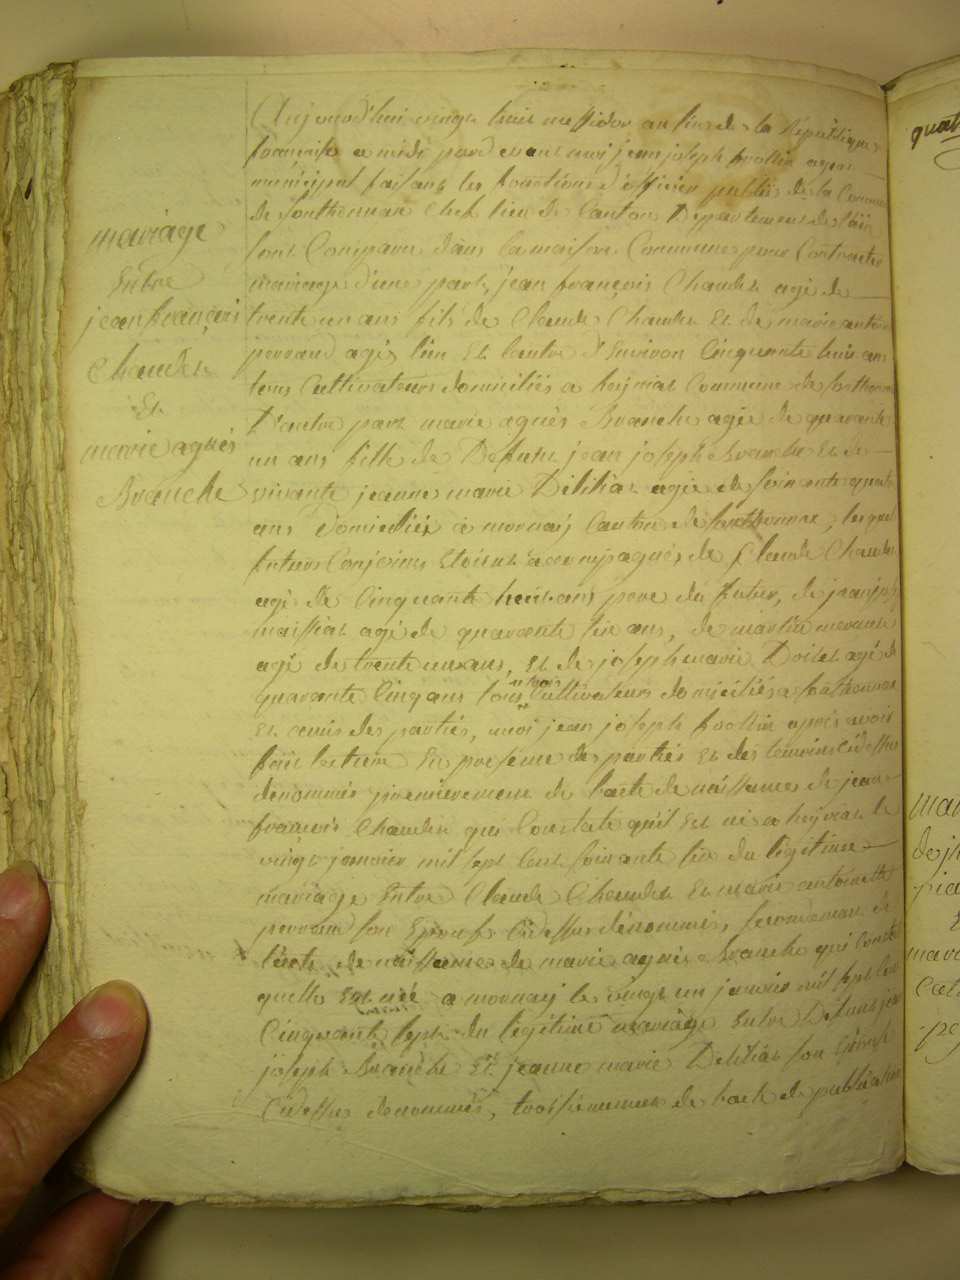 mariage
Entre
jean françois
Chaudet
Et
marie agnès
Branche
Aujourd'hui vingt huit messidor an six de la République
française a midi pard evant moi jean joseph frollin agen
municipal faisant les fonctions d'officier public de la Commune
de Sonthonnax Chef lieu de Canton Département de l'ain
sont Comparu dans la maison Commune pour Contracter
mariage d'une part, jean françois Chaudet agé de
trente un ans fils de Claude Chaudet Et de marie antoi
perraud agés l'un Et l'autre d'Environ Cinquante huit ans
tous Cultivateurs domiciliés a heyriat Commune de Sonthonnax
D'autre part marie agnès Branche agée de quarante
un ans fille de Defunt jean joseph Branche Et de
vivante jeanne marie Dilitiat agée de soixante quatre
ans domiciliée a mornay Canton de Sonthonnax, lesquels
futurs Conjoints Etoient accompagnés de Claude Chaudet
agé de Cinquante huit ans père du futur, de jean joseph
massiat agé de quarante six ans, de martin
agé de trente un ans, Et de joseph marie Doitet agé de
quarante Cinq ans tous trois Cultivateurs domiciliés a Sonthonnax
Et amis des parties, moi jean joseph frollin après avoir
fait lecture En présence des parties Et des témoins cidessus
dénommés premièrement de l'acte de naissance de jean
françois Chaudet qui Constate qu'il Est né a heyriat le
vingt janvier mil sept cent soixante six du légitime
mariage Entre Claude Chaudet Et marie antoinette
perraud son Epouse Cidessus dénommés, secondement de
l'acte de naissance de marie agnès Branche qui Constate
quelle Est née a mornay le vingt un janvier mil sept cent
Cinquante sept du légitime mariage Entre Défunt jean
joseph Branche Et jeanne marie Dilitiat son Epouse
Cidessus denommés, troisiemement de l'acte de publication